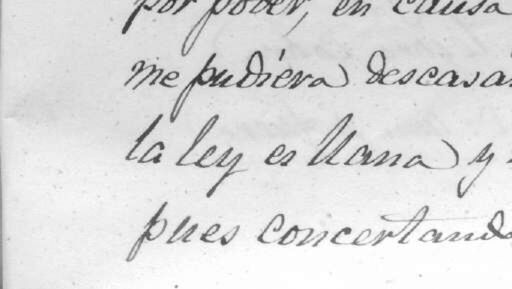 por poder, en causa
me pudiera descasa
la ley es llana y
pues concertand